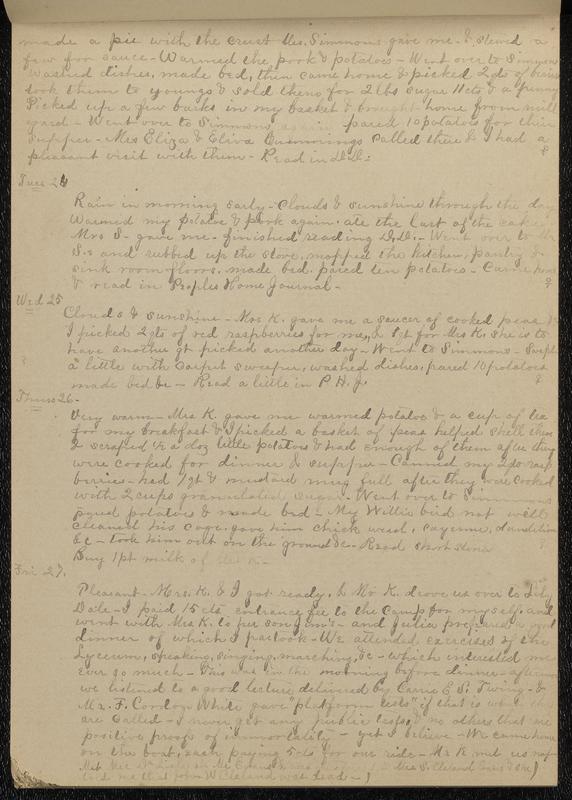 made a pie with the crust Mrs. Simmons gave me - & stewed a
few for sauce - Warmed the pork & potatoes - Went over to Simmons
washed dishes, made bed, then came home & picked 2 qts of
took them to youngs & sold them for 2 lbs sugar 11 cts & a penny
Picked up a few barks in my basket & brought home from mill
yard - Went over to Simmons again, pared 10 potatoes for their
supper - Mrs Eliza & Cummings called there & I had a
pleasant visit with them - Read in
Tues 24
Rain in morning early - Clouds & sunshine through the day
Warmed my potatoe & pork again. ate the last of the cake
Mrs S- gave me - finished reading - Went over to
S.s and rubbed up the stove, mopped the kitchen, pantry &
sink room floors, made bed, pared ten potatoes - Came home
& read in Peoples Home Journal -
Wed 25
Clouds & sunshine - Mrs K. gave me a saucer of cooked peas &
I picked 2 qts of red raspberries for me, & 1 qt for Mrs K. She is to
have another qt picked another day - Went to Simmons - Swept
a little with Carpet sweeper, washed dishes, pared 10 potatoes
made bed &c - Read a little in P. H. J.
Thurs 26 -
Very warm - Mrs K. gave me warmed potatoe & a cup of tea
for my breakfast & I picked a basket of peas helped shell them
& scraped 1/2 a doz little potatoes & had enough of them after they
were cooked for dinner & supper - Canned my 2 qts rasp
berries - had 1 qt & mustard mug full after they were cooked
with 2 cups granulated sugar - Went over to Simmons
pared potatoes & made bed - My Willie bird not well
cleaned his cage, gave him chick weed, cayenne, dandelion
&c - took him out on the ground &c - Read short stories
Buy 1 pt milk of
Fri 27.
Pleasant - Mrs. K. & I got ready, & Mr K. drove us over to Lily
Dale - I paid 15 cts entrance fee to the Camp for my self, and
went with Mrs K. to her son - and Julia prepared a good
dinner of which I partook - We attended exercises of the
Lyceum, speaking, singing, marching, &c - which interested me
ever so much - This was in the morning before dinner - afternoon
we listened to a good lecture delivered by Carrie E. S. Twing - &
Mr. F. Cordon White gave "platform tests" if that is what they
are called - I never got any public tests & no others that are
positive proof of immortality - yet I believe - We came home
on the boat, each paying 5 cts for our ride - Mr K. met us
Met Mrs Mrs S. Cleland
told me that John W Cleland was dead -